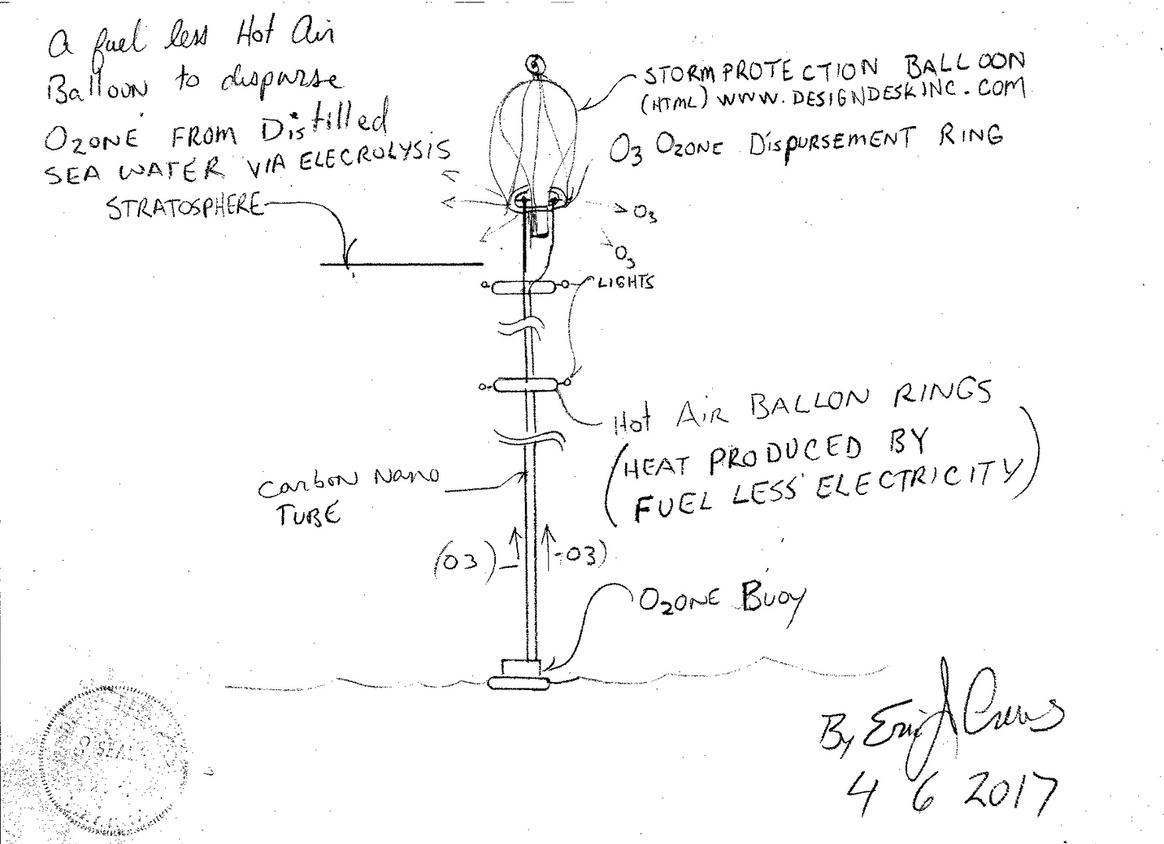 A fuel less Hot Air
Balloon to dispurse
OZONE FROM Distilled
SEA WATER VIA ELECROLYSIS
STRATOSPHERE
STORM PROTECTION BALLOON
(HTML) WWW.DESIGNDESKINC.COM
O3 OZONE DISPURSEMENT RING
O3
O3
LIGHTS
Hot AIR BALLON RINGS
(HEAT PRODUCED BY
FUEL LESS ELECTRICITY)
Carbon Nano
TUBE
(O3) O3)
OZONE BUOY
By Eric
4 6 2017
SEAL